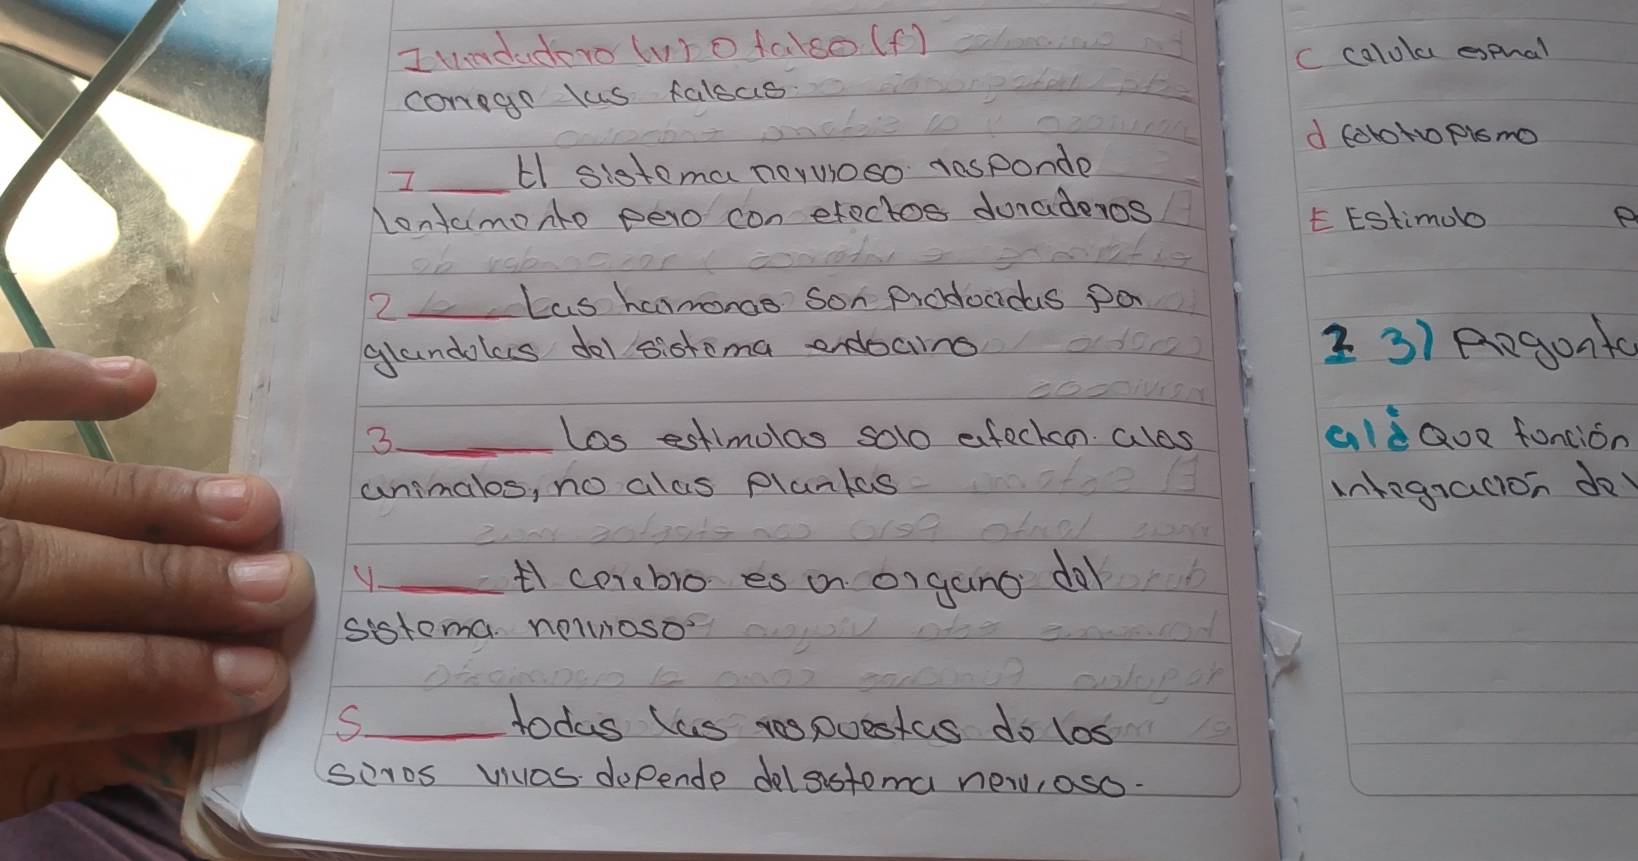 I verdadero (v) o falso (f)
correge las falsas.
1 ___ El sistema nervioso responde
lentamente pero con efectos duraderos
2 ___ Las hormonas son producidas por
glandulas del sistema endocrino
3 ___ Los estimulos solo afectan a los
animales, no a las Plantas
4 ___ El cerebro es un organo del
sistema nervioso
5 ___ todas las respuestas de los
seres vivos depende del sistema nervioso.
C celula espinal
d
E Estimulo
3) Pregunta
a) ¿Que función
integración del